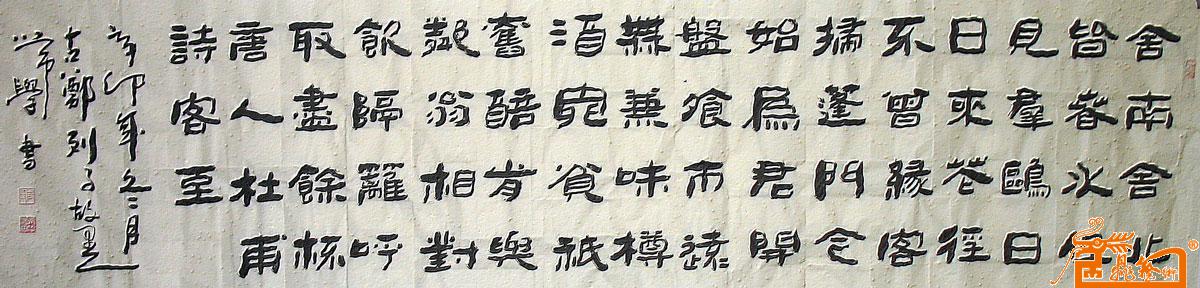 舍南舍北
皆春水但
見羣鷗日
日來花徑
不曾緣客
掃蓬門今
始為君開
盤飧市遠
無兼味樽
酒家貧祇
舊醅肯與
鄰翁相對
飲隔籬呼
取盡餘杯
唐人杜甫
詩客至
辛卯年冬月
古鄭列子故里
學書